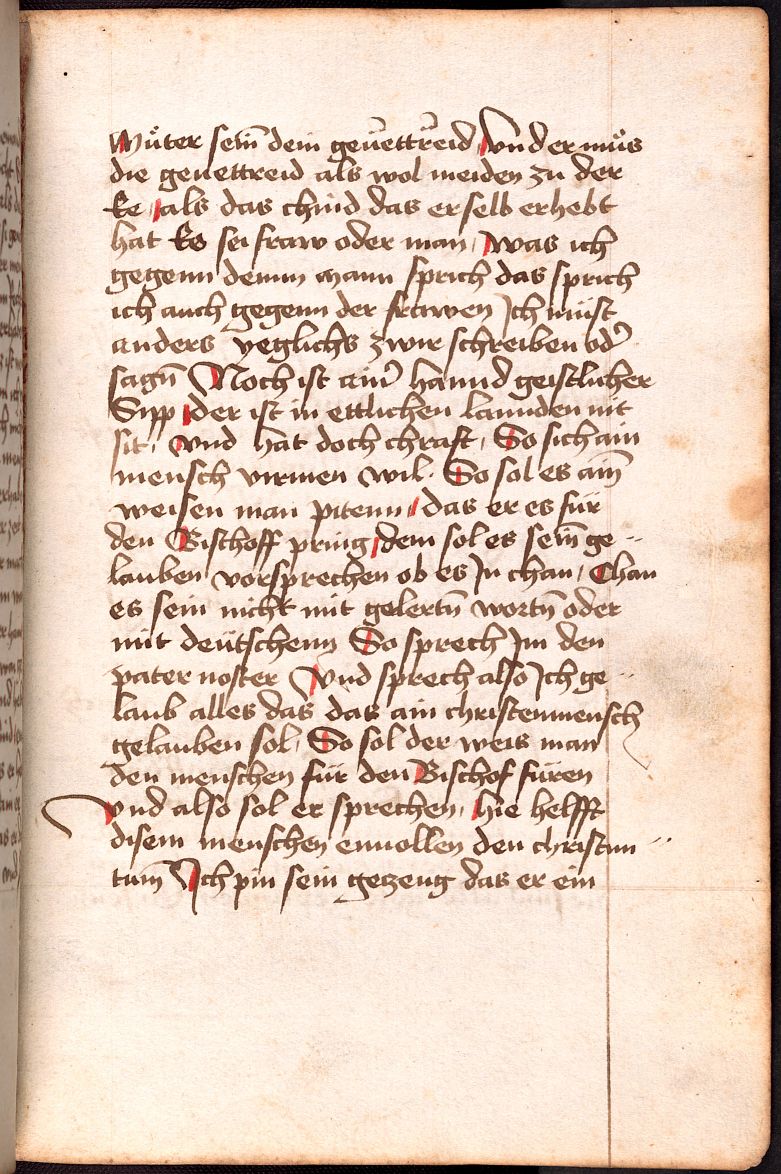 Můter sein̄ dein geūettrēid / Vnd er můs
die geuettreid als wol meiden zu der
Ee / als das chind das er selb erhebt
hat Es sei fraw oder man / was ich
gegenn demm mann sprich das sprich
ich auch gegenn der frawen Ich můst
anders yeglichs zwir schreiben od'
sagn̄ Noch ist ain' hannd geistlicher
Sipp / der ist in ettlichen lannden nit
sit / vnd hat doch chraft / So sich ain
mensch virmen wil. So sol es ain̄
weisen man pitenn / das er es für
den Bischoff pring / dem sol es sein̄ ge
lauben vorsprechen ob es Jn chan / Chan
es sein nicht mit gelertn̄ wortn̄ oder
mit deütschenn So sprech Jm den
pater noster Vnd sprech also Ich ge
laub alles das das ain christenmensch
gelauben sol / So sol der weis man
den menschen für den Bischof füren
Vnd also sol er sprechen / hie helfft
disem menschen ernollen den christen
tum̄ Ich pin sein getzeug das er ein